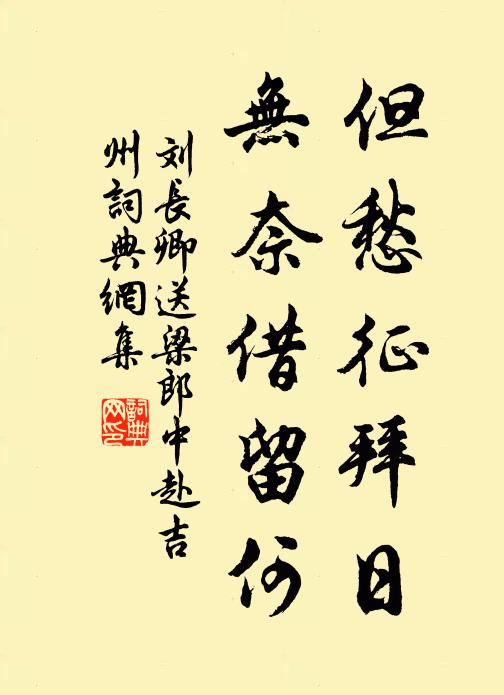 但愁征拜日
無奈借留何
刘長卿送梁郎中赴吉
州詞典網集
詞典
网印